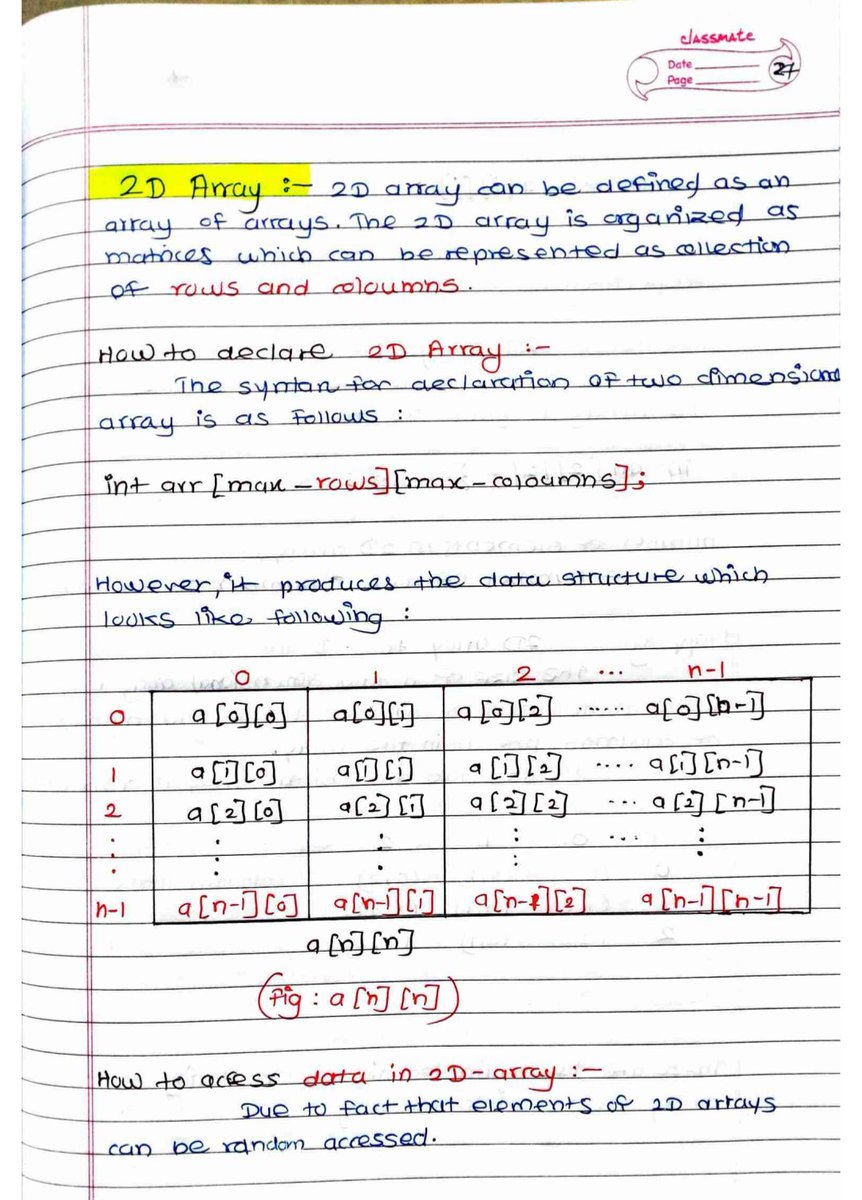 classmate
Date
Page
27
2D Array :- 2D array can be defined as an
array of arrays. The 2D array is organized as
matrices which can be represented as collection
of rows and coloumns.
How to declare 2D Array :-
The syntax for declaration of two dimensional
array is as follows :
int arr [max-rows][max-coloumns];
However, it produces the data structure which
looks like following :
0 1 2 ... n-1
0 a[0][0] a[0][1] a[0][2] ...... a[0][n-1]
1 a[1][0] a[1][1] a[1][2] .... a[1][n-1]
2 a[2][0] a[2][1] a[2][2] ... a[2][n-1]
⋮ ⋮ ⋮ ⋮ ... ⋮
n-1 a[n-1][0] a[n-1][1] a[n-1][2] a[n-1][n-1]
a[n][n]
(fig : a[n][n])
How to access data in 2D-array :-
Due to fact that elements of 2D arrays
can be random accessed.